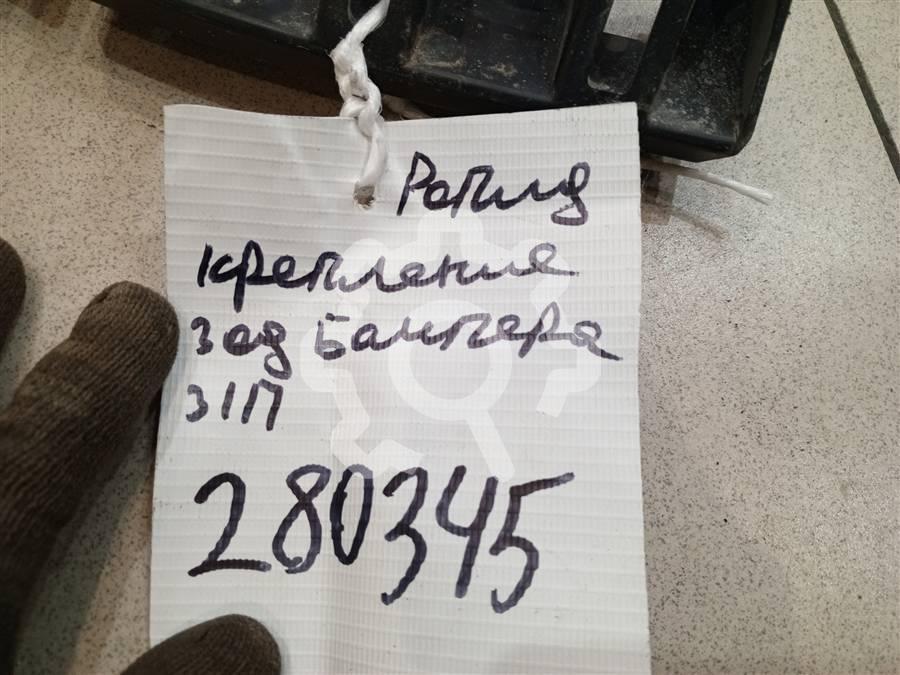 Рапид
крепление
зад бампера
З/П
280345